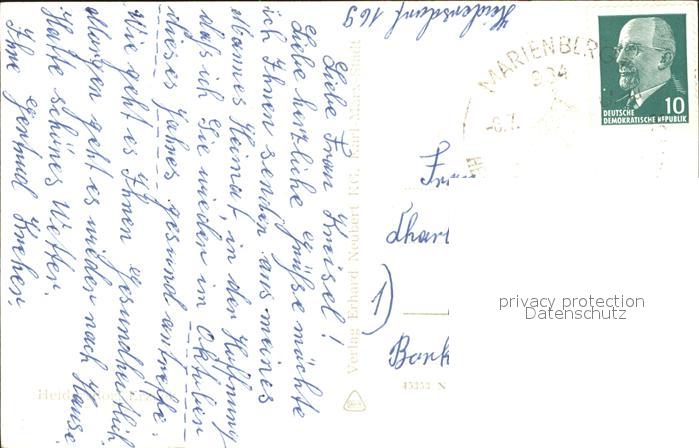 Heidersdorf 169
Liebe Frau Kreisel!
Liebe herzliche Grüße möchte
ich Ihnen senden aus meines
Mannes Heimat, in der Hoffnung
daß ich Sie wieder im Oktober
dieses Jahres gesund antreffe.
Wie geht es Ihnen gesundheitlich.
Morgen geht es wieder nach Hause.
Hatte schönes Wetter.
Ihre Gertrud
Verlag Erhard Neubert KG, Karl-Marx-Stadt
MARIENBERG
934
-6.7.
10
DEUTSCHE
DEMOKRATISCHE REPUBLIK
privacy protection
Datenschutz